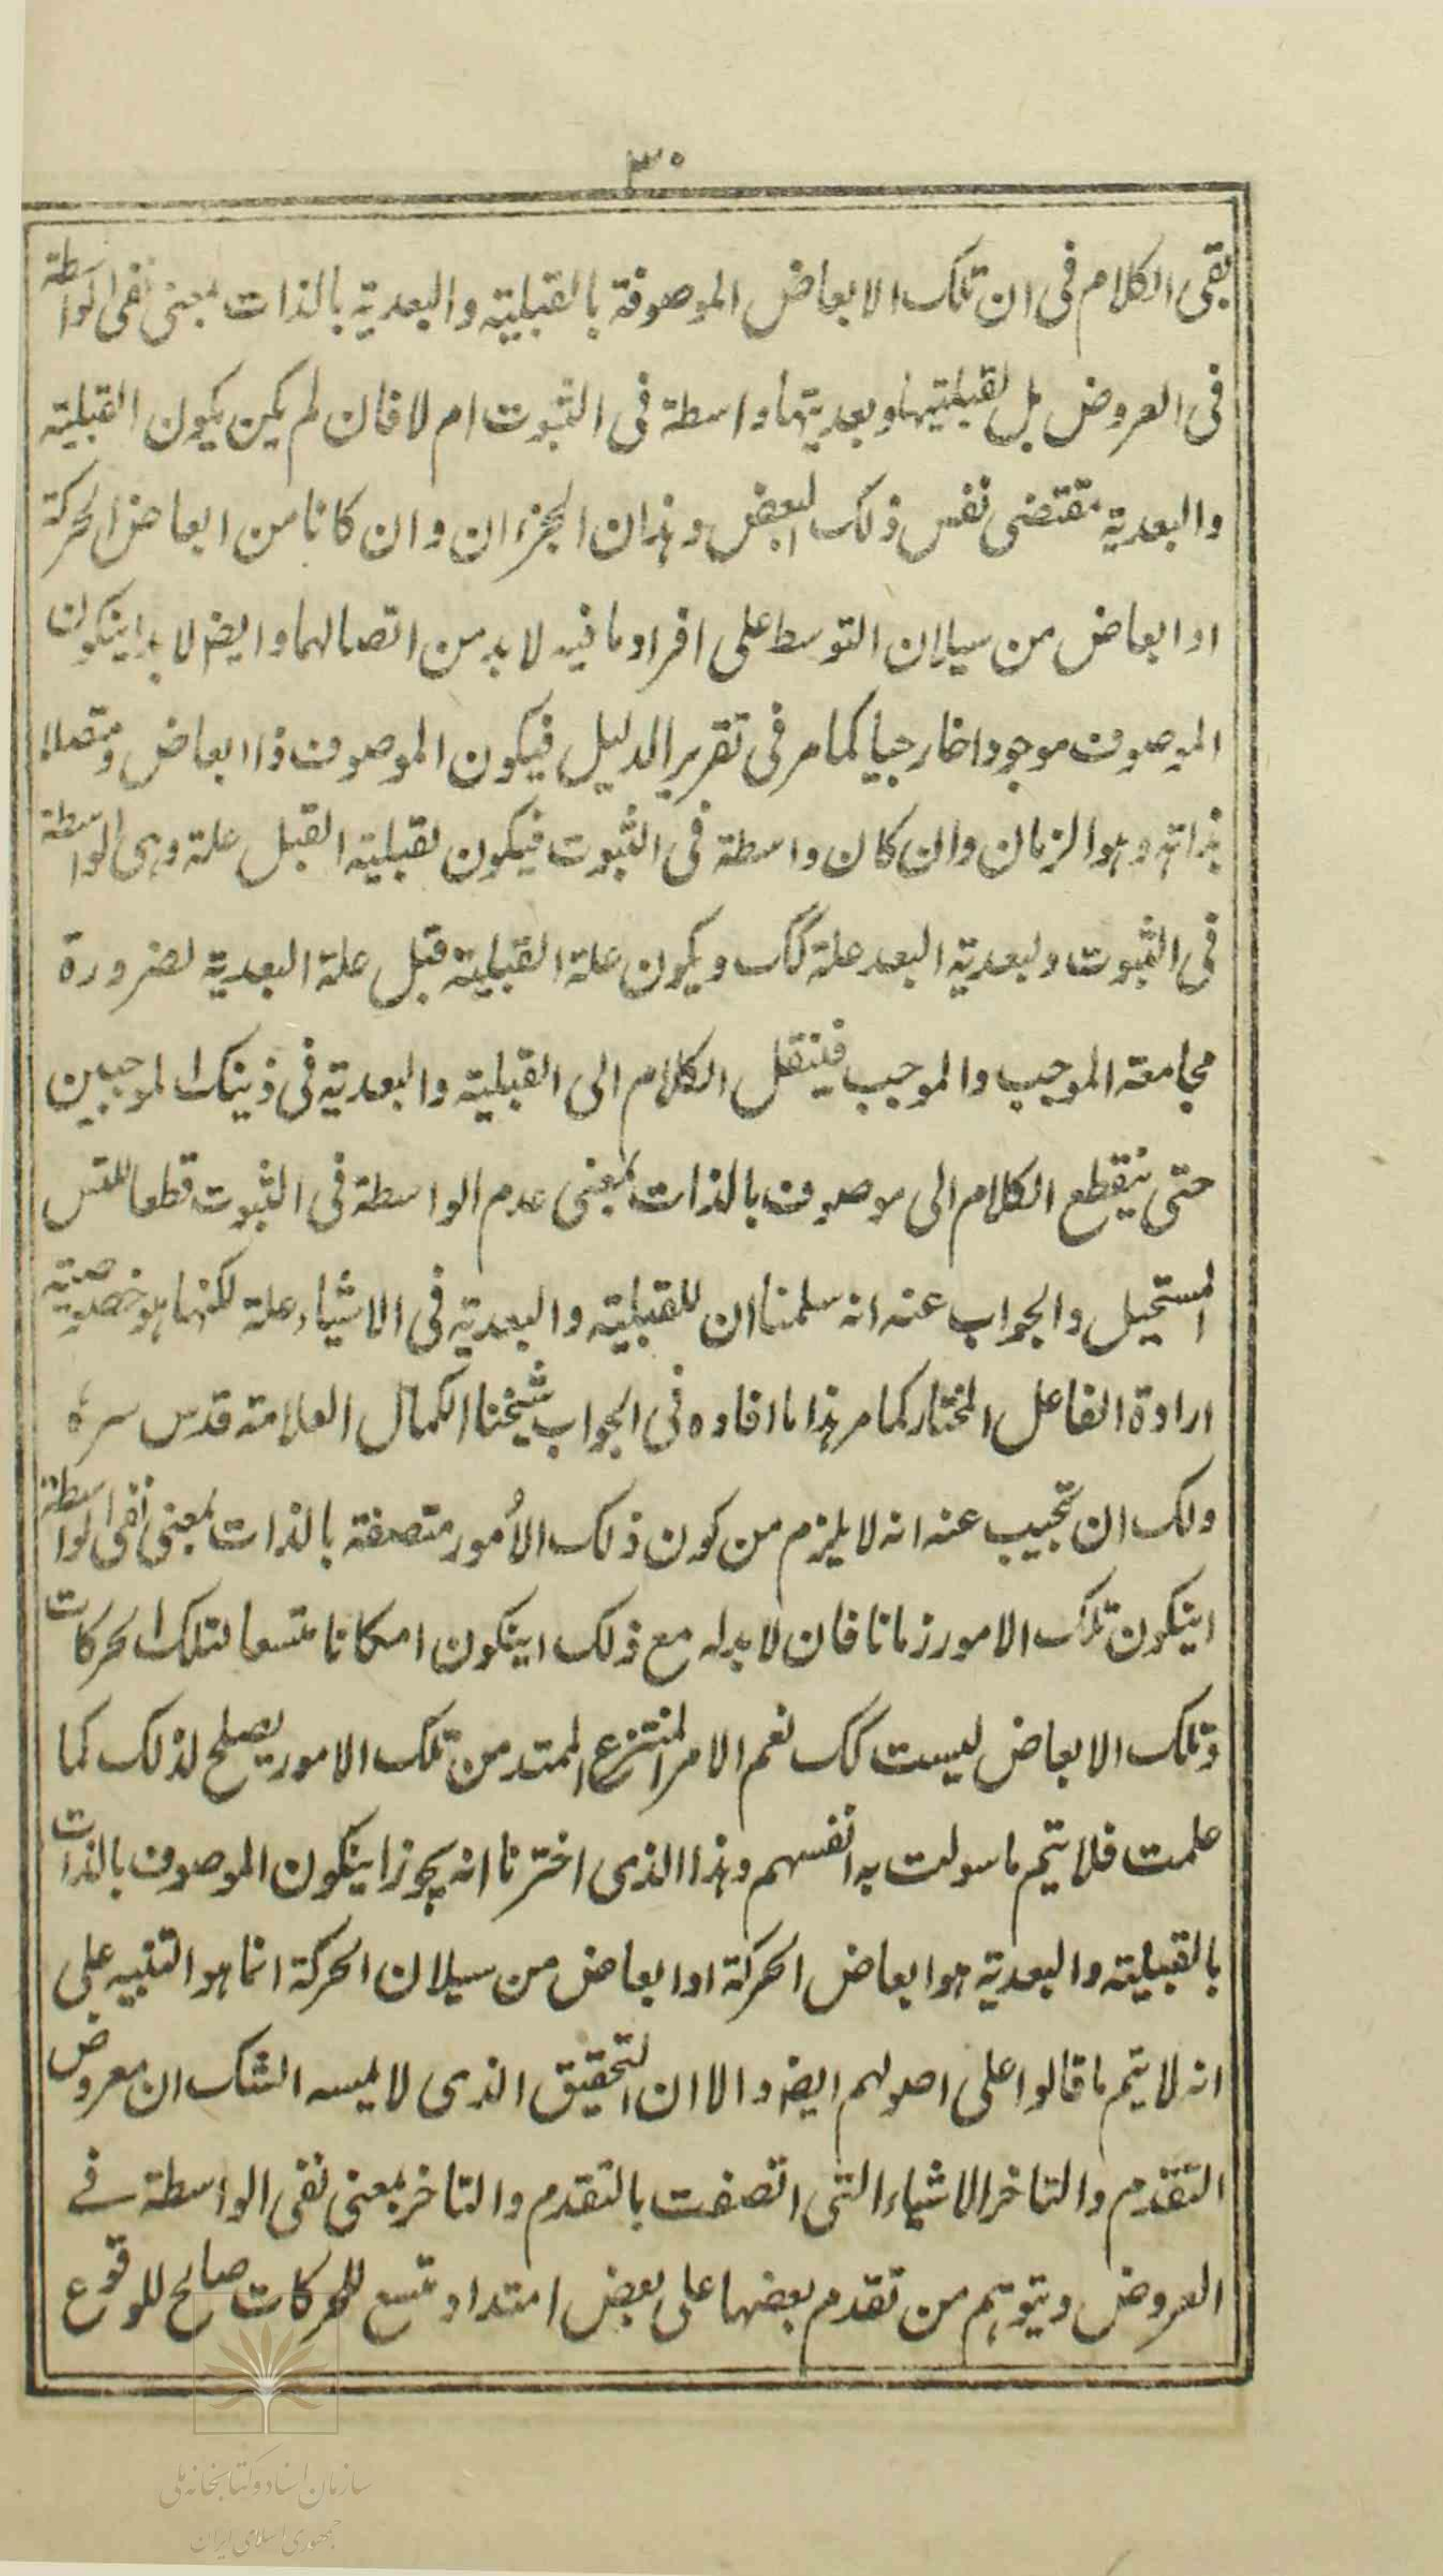 ٣٠
بقى الكلام فى ان تلك الابعاض الموصوفة بالقبلية والبعدية بالذات بمعنى نفى الواسطة
فى العروض بل لقبليتها وبعديتها واسطة فى الثبوت ام لا فان لم يكن يكون القبلية
والبعدية مقتضى نفس ذلك البعض وهذان الجزءان وان كانا من ابعاض الحركة
او ابعاض من سيلان التوسط على افراد ما فيه لا بد من اتصالهما وايضا لا بد اينكون
الموصوف موجودا خارجيا كما مر فى تقرير الدليل فيكون الموصوف ذا ابعاض ومتصلا
بذاته وهو الزمان وان كان واسطة فى الثبوت فيكون لقبلية القبل علة وهى الواسطة
فى الثبوت ولبعدية البعد علة كك ويكون علة القبلية قبل علة البعدية لضرورة
مجامعة الموجب والموجب فينقل الكلام الى القبلية والبعدية فى ذينك الموجبين
حتى ينقطع الكلام الى موصوف بالذات بمعنى عدم الواسطة فى الثبوت قطعا للتس
المستحيل والجواب عنه انه سلمنا ان للقبلية والبعدية فى الاشياء علة لكنها هو خصوصية
ارادة الفاعل المختار كما مر هذا ما افاده فى الجواب شيخنا الكمال العلامة قدس سره
ولك ان تجيب عنه انه لا يلزم من كون ذلك الأمور متصفة بالذات بمعنى نفى الواسطة
اينكون تلك الامور زمانا فان لا بد له مع ذلك اينكون امكانا متسعا لتلك الحركات
وتلك الابعاض ليست كك نعم الامر المنتزع الممتد من تلك الامور يصلح لذلك كما
علمت فلا يتم ما سولت به انفسهم وهذا الذى اخترنا انه يجوز اينكون الموصوف بالذات
بالقبلية والبعدية هو ابعاض الحركة او ابعاض من سيلان الحركة انما هو التنبيه على
انه لا يتم ما قالوا على اصولهم ايضا والا ان التحقيق الذى لا يمسه الشك ان معروض
التقدم والتاخر الاشياء التى اتصفت بالتقدم والتاخر بمعنى نفى الواسطة فے
العروض ويتوهم من تقدم بعضها على بعض امتداد متسع للحركات صالح للوقوع
سازمان اسناد و کتابخانه ملی
جمهوری اسلامی ایران